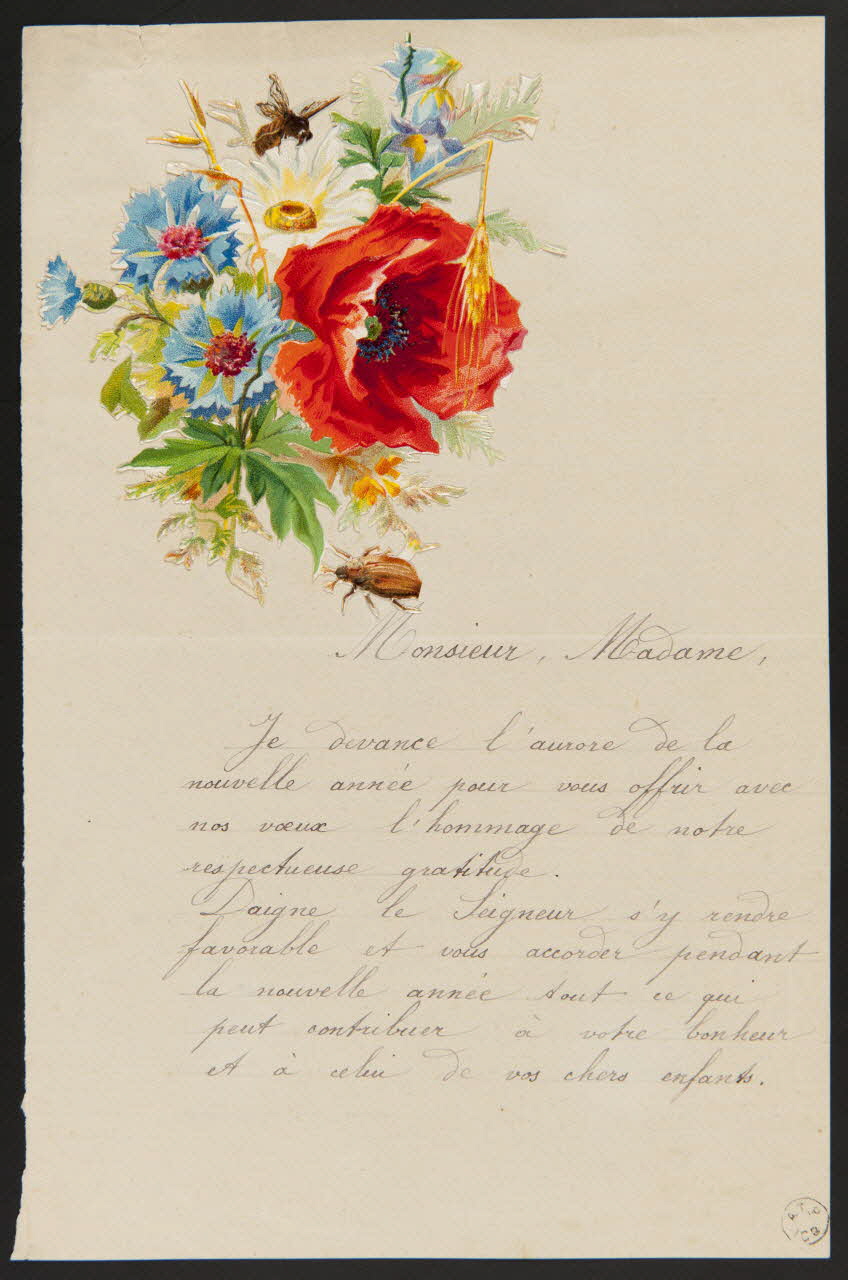 Monsieur, Madame,
Je devance l'aurore de la
nouvelle année pour vous offrir avec
nos vœux l'hommage de notre
respectueuse gratitude.
Daigne le Seigneur s'y rendre
favorable et vous accorder pendant
la nouvelle année tout ce qui
peut contribuer à votre bonheur
et à celui de vos chers enfants.